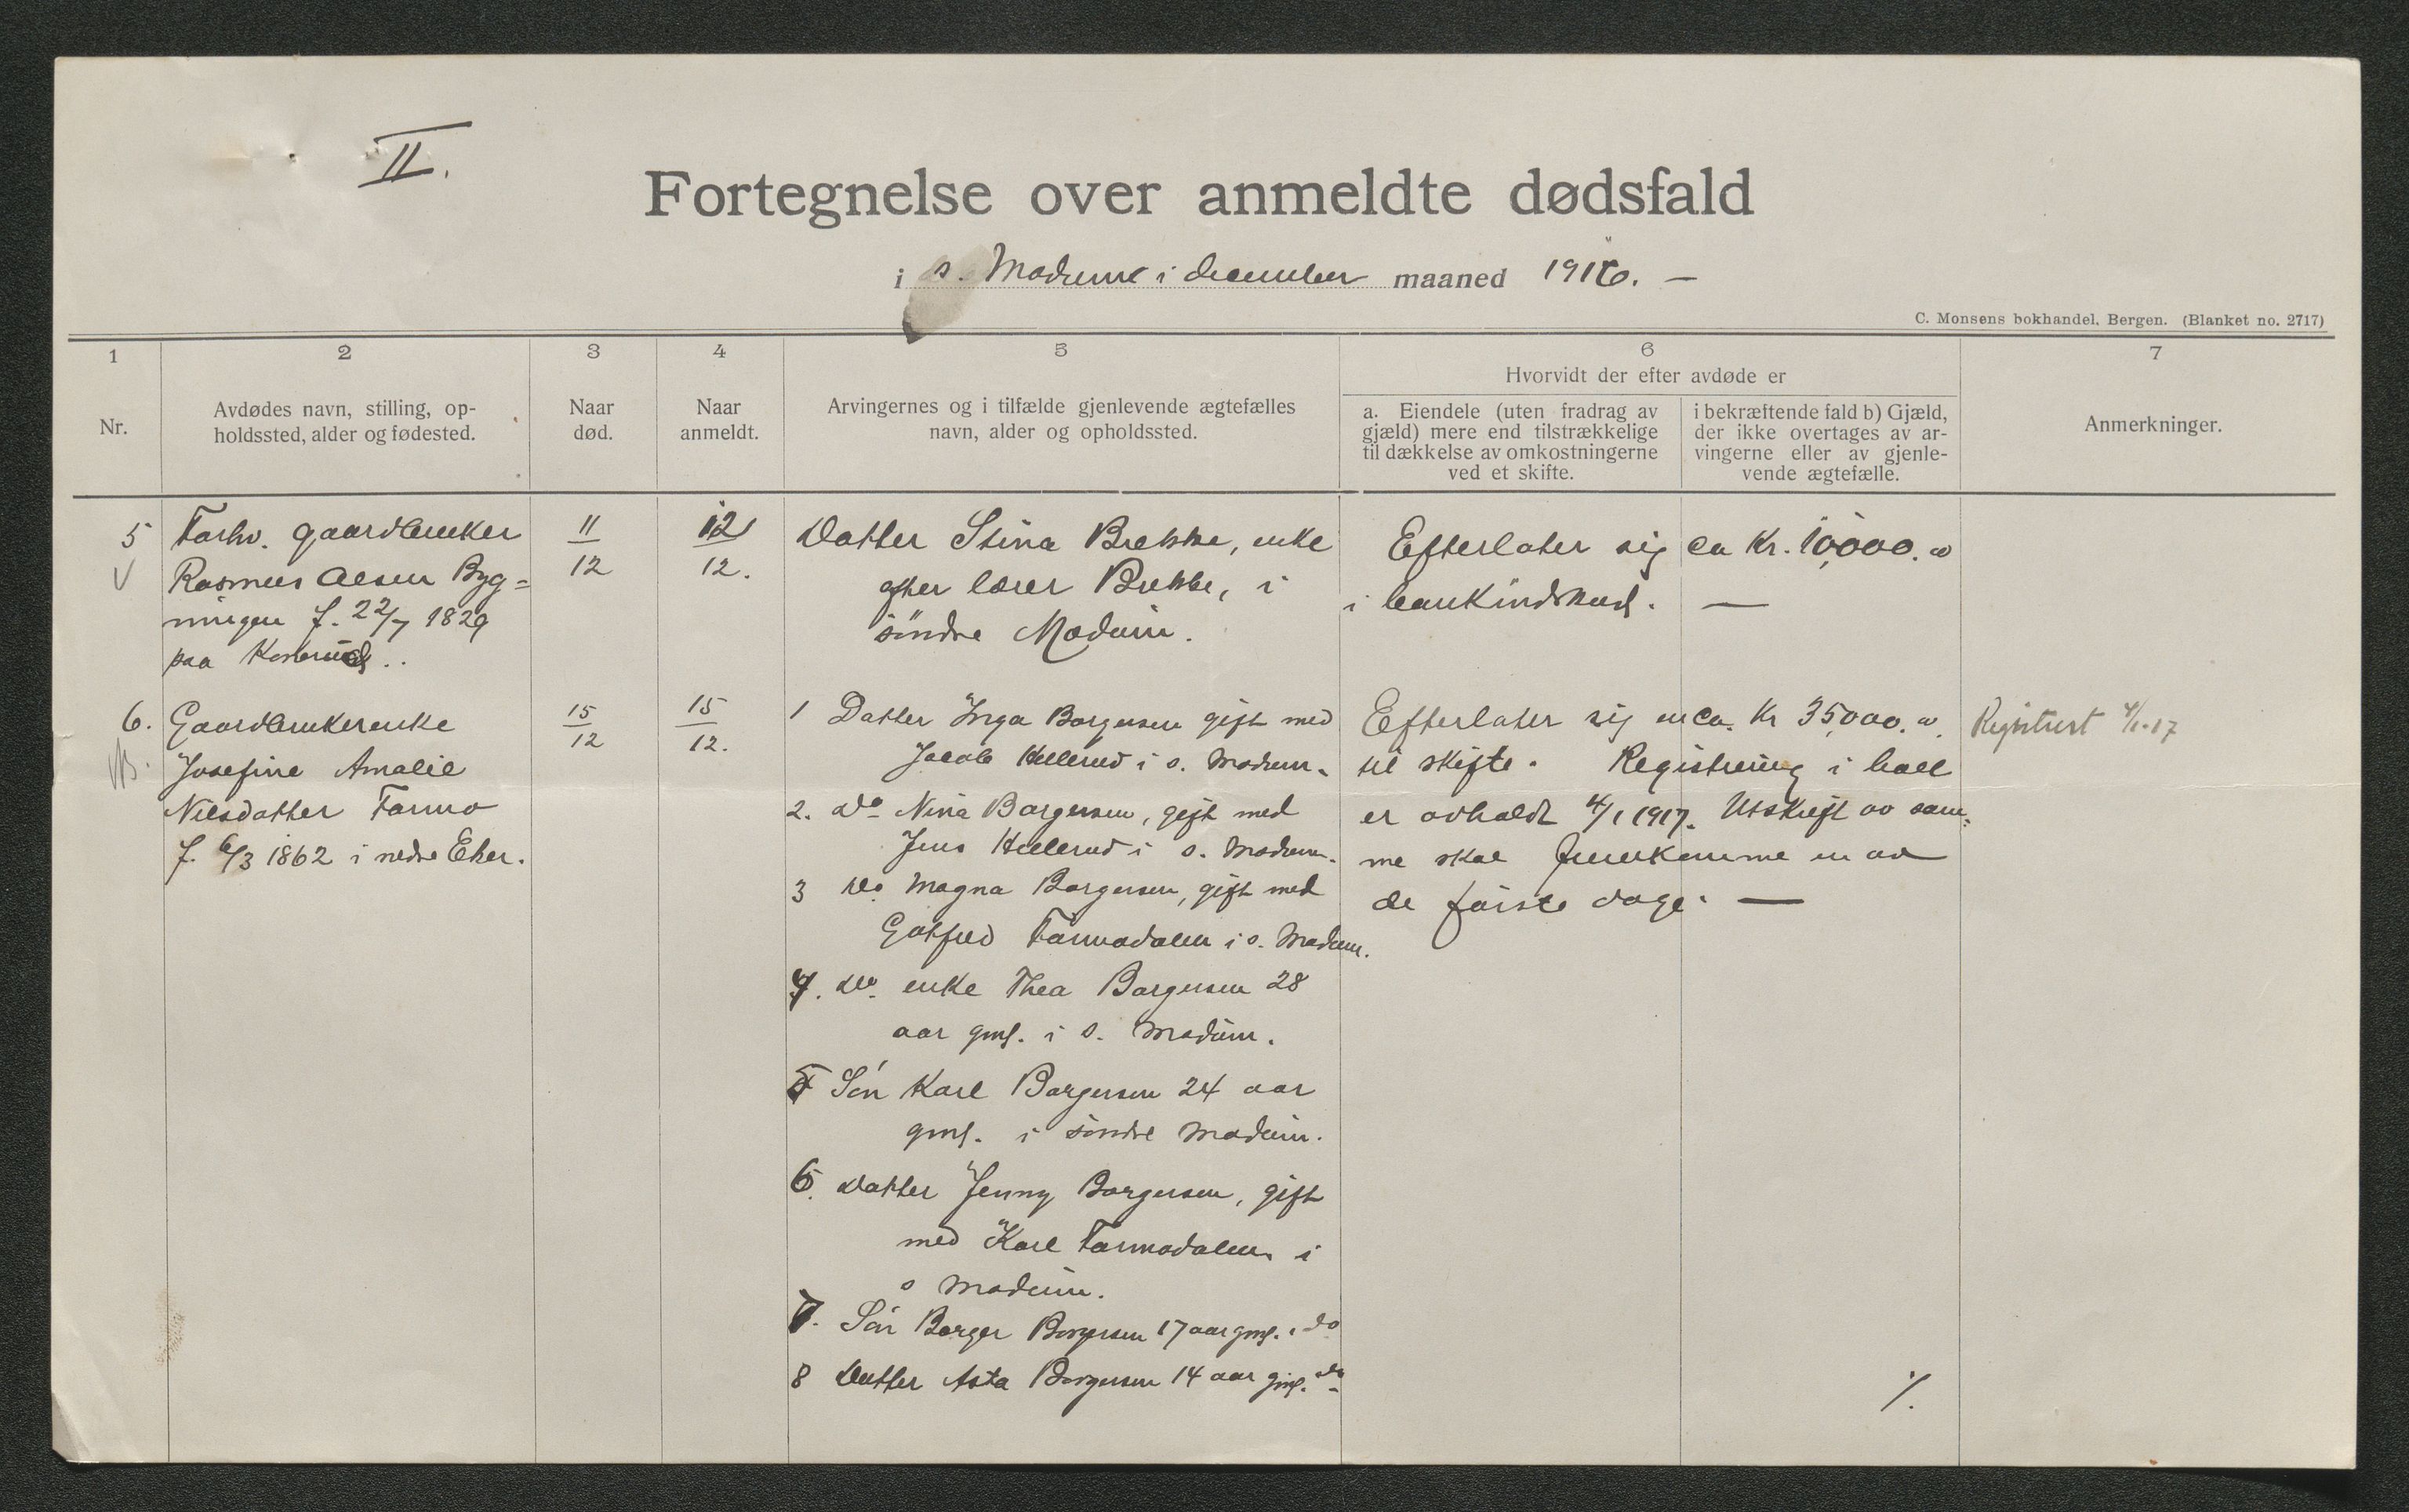 II.
Fortegnelse over anmeldte dødsfald
i s. Modum i december maaned 1916. —
C. Monsens bokhandel, Bergen. (Blanket no. 2717)
1
Nr.
2
Avdødes navn, stilling, op-
holdssted, alder og fødested.
3
Naar
død.
4
Naar
anmeldt.
5
Arvingernes og i tilfælde gjenlevende ægtefælles
navn, alder og opholdssted.
6
Hvorvidt der efter avdøde er
a. Eiendele (uten fradrag av
gjæld) mere end tilstrækkelige
til dækkelse av omkostningerne
ved et skifte.
i bekræftende fald b) Gjæld,
der ikke overtages av ar-
vingerne eller av gjenle-
vende ægtefælle.
7
Anmerkninger.
5
Forhv. gaardbruker
Rasmus Olsen Byg=
ningen f. 22/7 1829
paa
11
12
12
12.
Datter Stina Brekke, enke
efter lærer Brekke, i
söndre Modum.
Efterlater sig ca Kr. 10,000.
i bankindskud. —
6.
Gaardbrukerenke
Josefine Amalie
Nilsdatter Formo
f. 6/3 1862 i nedre Eker.
15
12
15
12.
1 Datter Inga Borgersen gift med
Jacob Hellerud i s. Modum.
2. do Nina Borgersen, gift med
Jens Hellerud i s. Modum.
3 do. Magna Borgersen, gift med
Gotfred Formodalen i s. Modum.
4. do. enke Thea Borgersen 28
aar gml. i s. Modum.
5 Sön Karl Borgersen 24 aar
gml. i söndre Modum.
6. Datter Jenny Borgersen, gift
med Karl Formodalen i
s Modum.
7. Sön Borger Borgersen 17 aar gml. i do
8 Datter Asta Borgersen 14 aar gml. do
Efterlater sig en ca. Kr 35,000.
til skifte. Registrering i boet
er avholdt 4/1 1917. Utskrift av sam=
me skal fremkomme en av
de förste dage. —
Registrert 4/1-17
%.